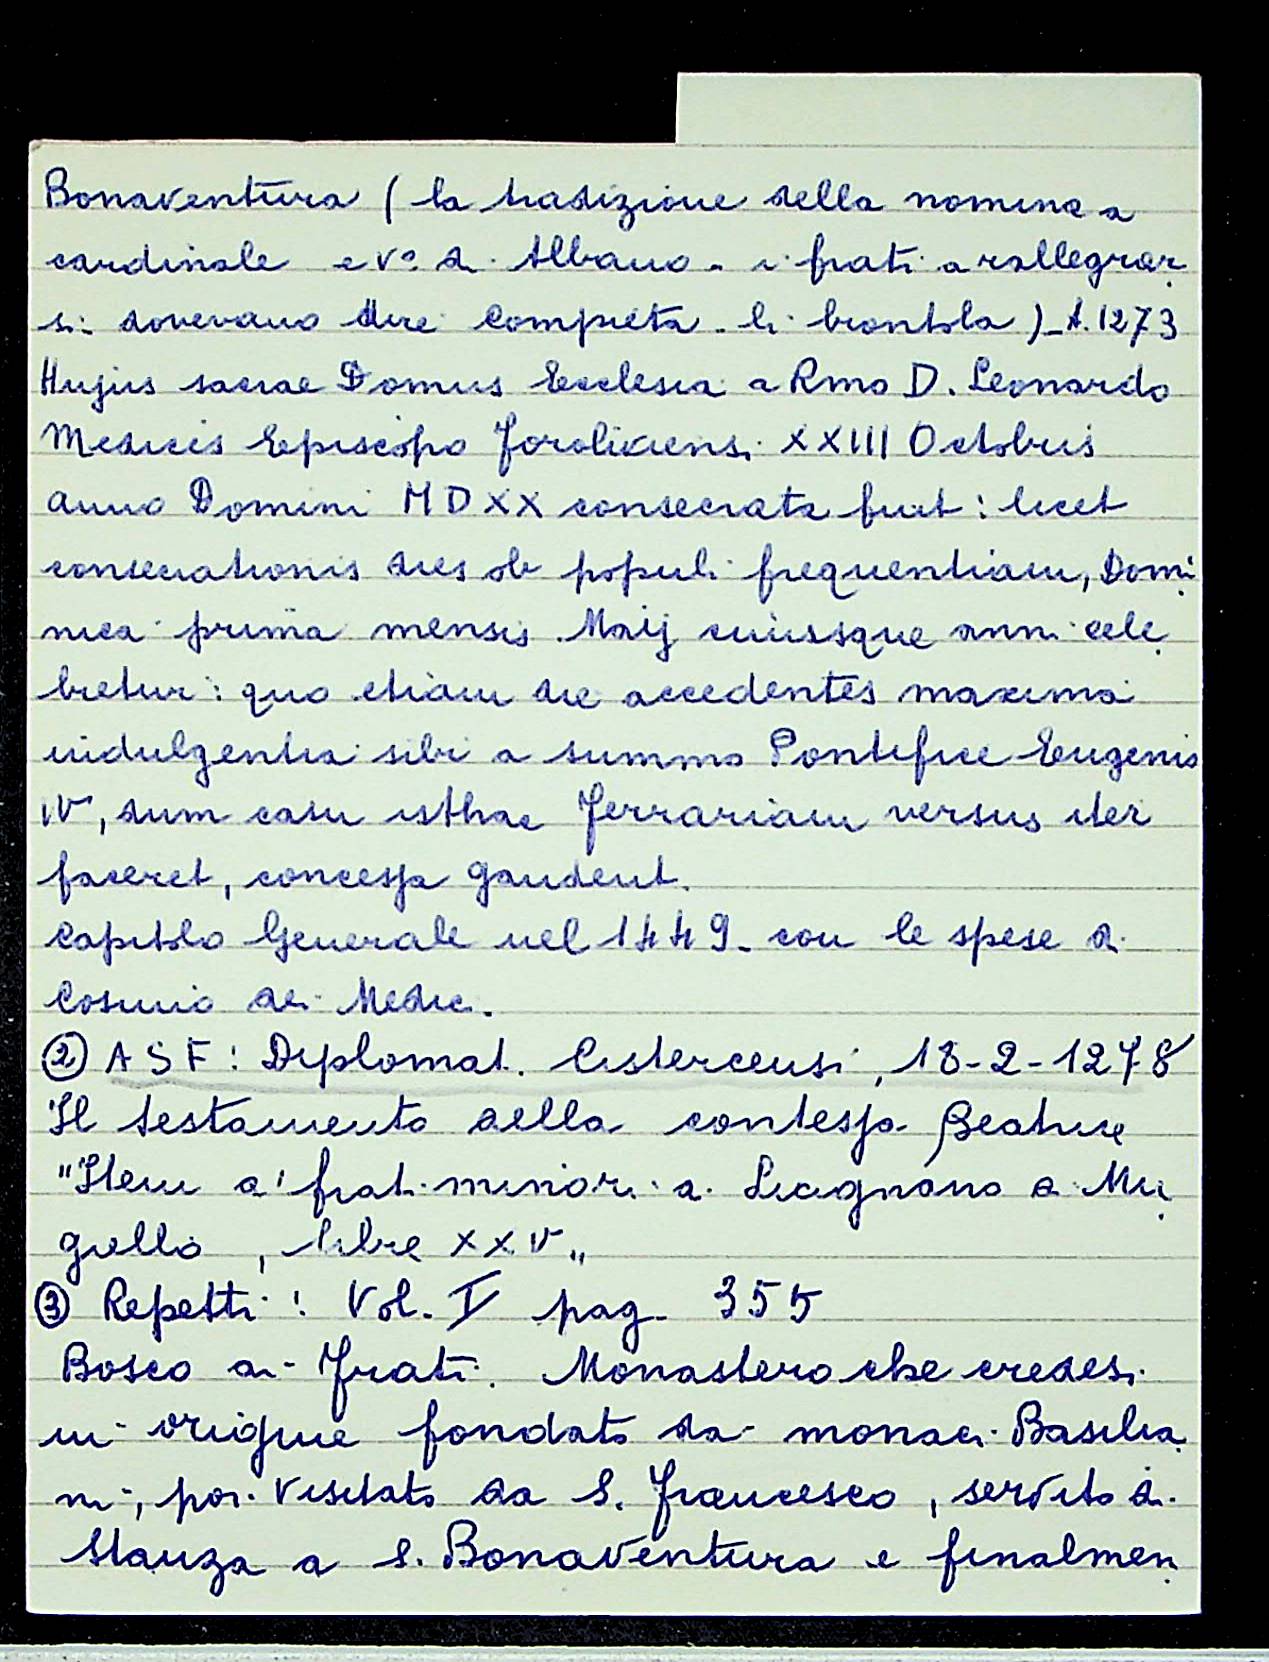 Bonaventura (la tradizione della nomina a
cardinale e v° di Albano - i frati a rallegrar
si dovevano dire Compieta - li brontola) - A. 1273
Hujus sacrae Domus Ecclesia a Rmo D. Leonardo
Medicis Episcopo Foroliviensi XXIII Octobris
anno Domini MDXX consecrata fuit: licet
consecrationis dies ob populi frequentiam, Domi
nica prima mensis Maij cuiusque anni cele
bretur: quo etiam die accedentes maxima
indulgentia sibi a summo Pontifice Eugenio
IV, dum casu isthac Ferrariam versus iter
faceret, concessa gaudent.
Capitolo Generale nel 1449 - con le spese di
Cosimo dei Medici.
② ASF: Diplomat. Cistercensi, 18-2-1278
Il testamento della contessa Beatrice
"Item a' frati minori di Lucignano di Mu
giello, libre XXV"
③ Repetti: Vol. I pag. 355
Bosco ai Frati. Monastero che credesi
in origine fondato da monaci Basilia
ni, poi visitato da S. Francesco, servito di
stanza a S. Bonaventura e finalmen